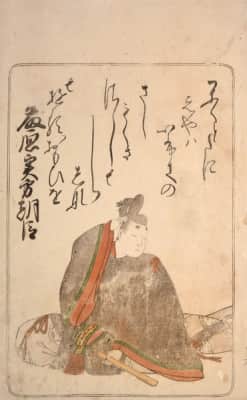 かくとたに
えやハ
いふきの
さし
もくさ
さしも
しら
しな
もゆるおもひを
藤原実方朝臣